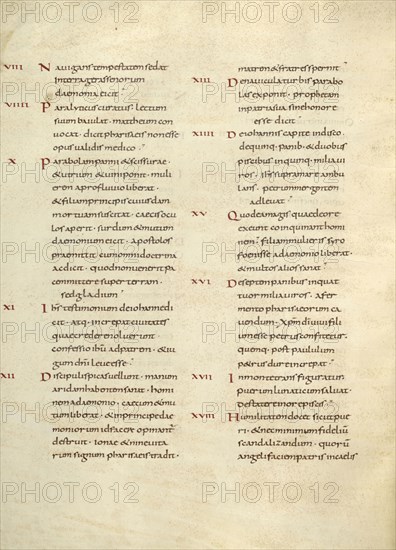 VIII Nauigans tempestatem sedat
Inter agerassenorum
daemonia eicit ·
VIIII Paralyticus curatus · lectum
suum baiulat · mattheum con
uocat · dicit pharisaeis non esse
opus ualidis medico ·
X Parabolam panni & scissurae
& utrium & uini ponit · muli
erem a profluuio liberat ·
& filiam principis cuiusdam
mortuam suscitat · caecis ocu
los aperit · surdum & mutum
daemonium eicit · apostolos
praemittit eunom in doctrina
ac dicit · quod non uenerit pa
cem mittere super terram ·
sed gladium ·
XI ihs testimonium de iohanne di
cit · atq, increpat ciuitates
quae credere noluerunt ·
confessio ihu ad patrem · & iu
gum dni leue esse ·
XII Discipulis spicas uellunt · manum
aridam habentem sanat · homi
nem a daemonio · caecum & mu
tum liberat · & in principe dae
moniorum id facere opinantes
destruit · ionae & nineuita
rum signum pharisaeis tradit ·
matrem & fratres spernit
XIII De nauicula turbis parabo
las exponit · prophetam
in patria sua sine honore
esse dicit ·
XIIII De iohannis capite in disco ·
de quinq, panib, & duobus
piscibus in quinq, milia ui
ros · ihs supra mare ambu
lans · petrum mergentem
adleuat ·
XV Quod ea magis quae de core
exeunt coinquinant homi
nem · filiam mulieris syro
foenissae a daemonio liberat ·
& multos alios sanat ·
XVI De septem panibus in quat
tuor milia uiros · a fer
mento pharisaeorum ca
uendum · Xpm di uiui fili
um esse petrus confitetur ·
quonq, post paululum
petrus durae increpat ·
XVII In monte transfiguratus ·
puerum lunaticum saluat ·
de statere in ore piscis ·
XVIII Humilitatem docet sicut pue
ri · & neminem infidelium
scandalizandum · quorum
angeli faciem patris in caelis
PHOTO 12